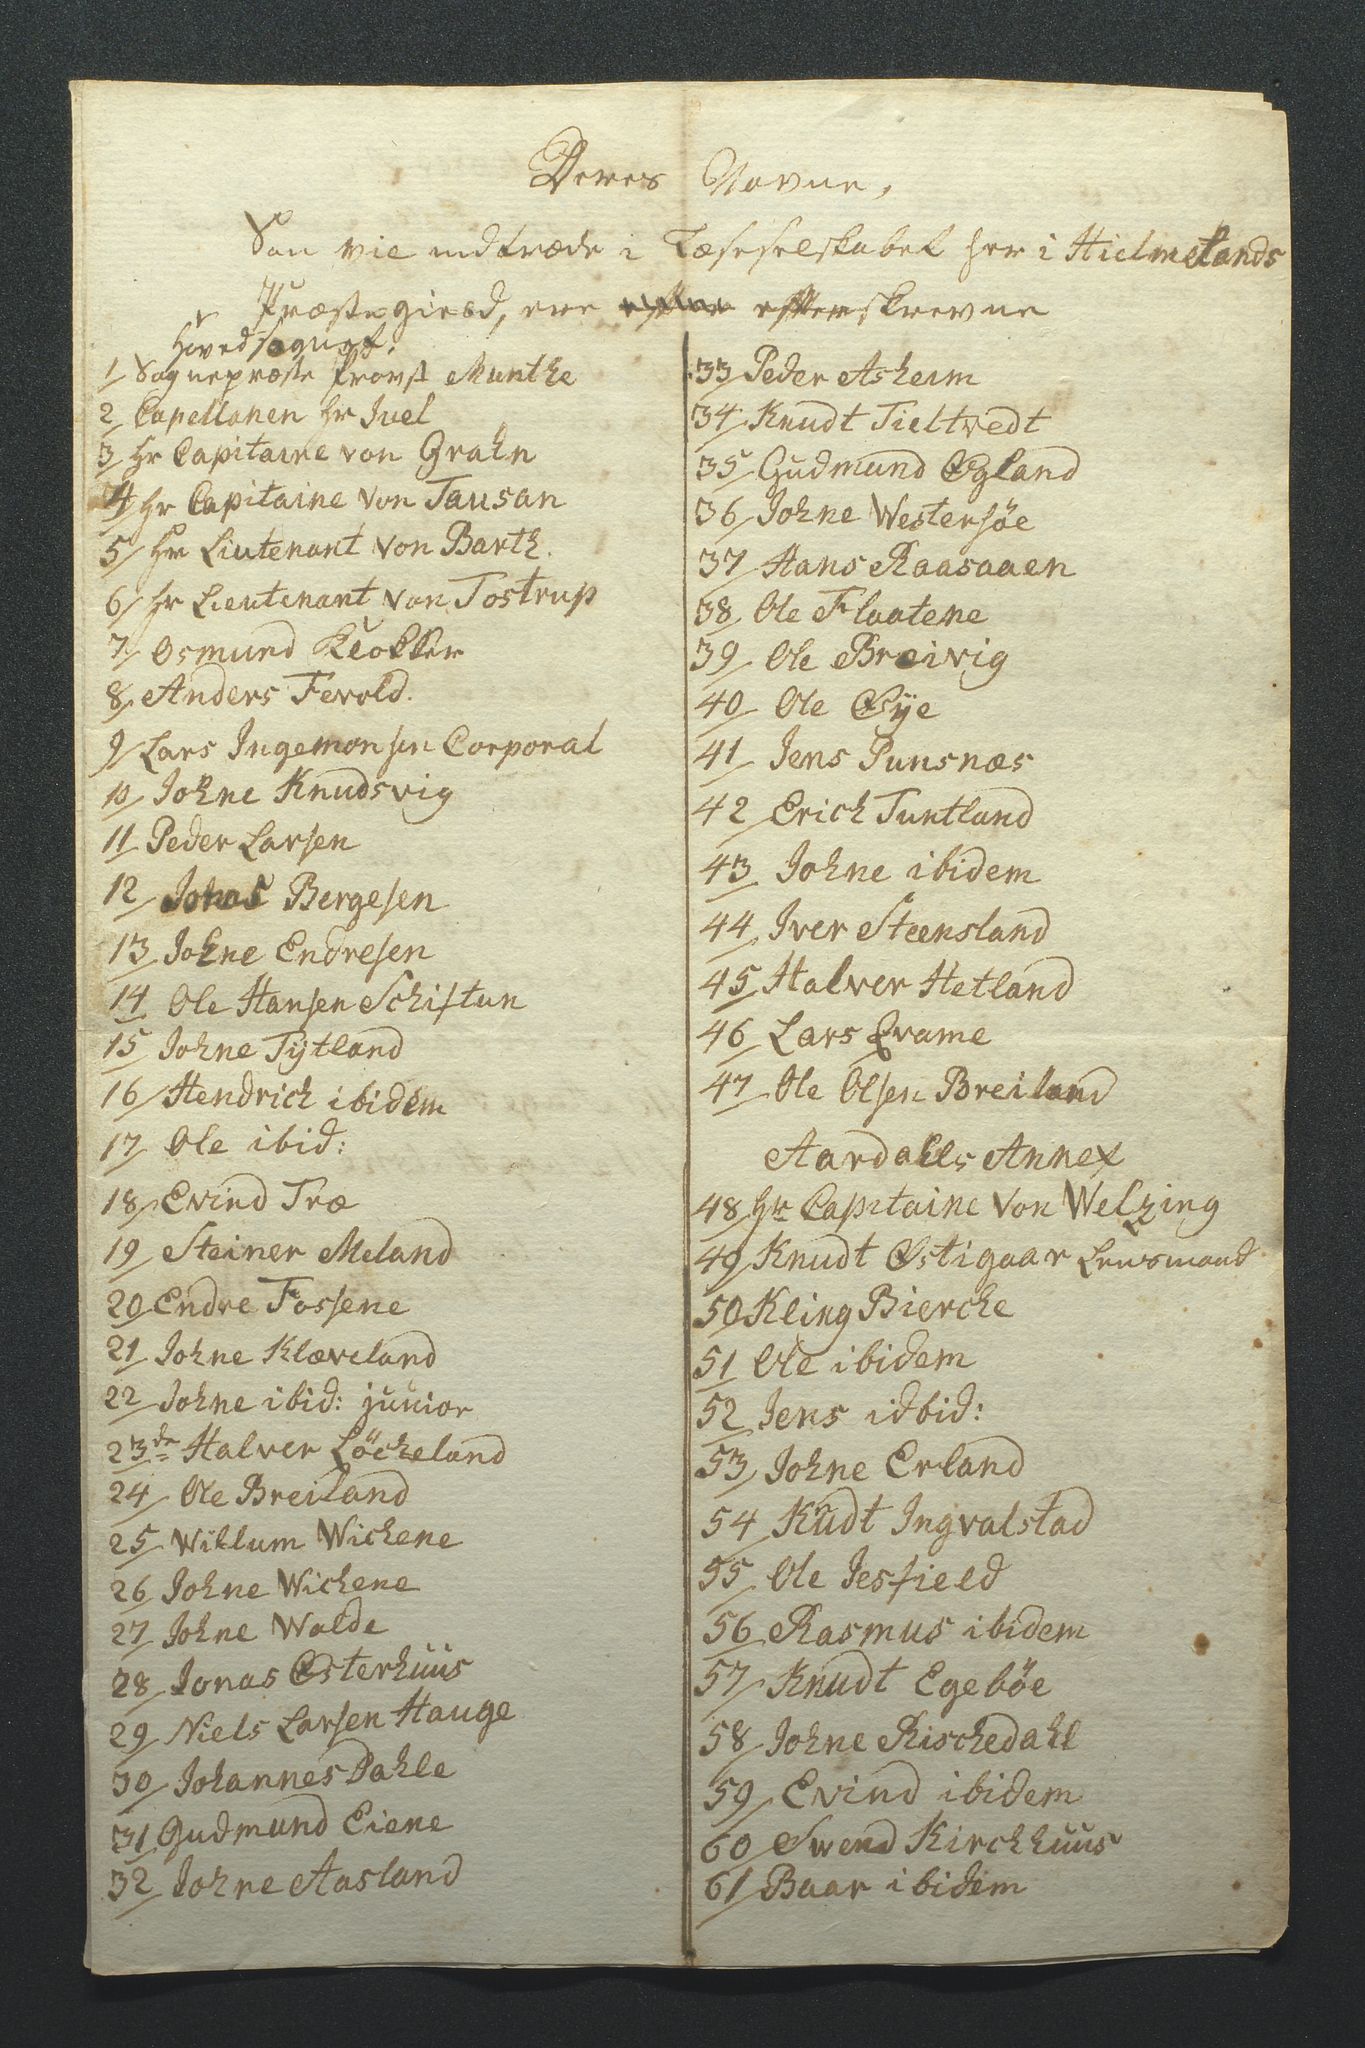 Deres Navne,
Som vil indtræde i Læseselskabet her i Hielmelands
Præstegield, ere efterskrevne
Hovedsognet.
1/ Sognepræste Provst Munthe
2/ Capellanen Hr Juel
3/ Hr Capitaine von Grahn
4/ Hr Capitaine von Tausan
5/ Hr Liutenant von Barth.
6/ Hr Lieutenant von Tostrup
7/ Osmund Klokker
8/ Anders Fevold.
9/ Lars Ingemonsen Corporal
10/ Johne Knudsvig
11 Peder Larsen
12/ Jonas Bergesen
13/ Johne Endresen
14 Ole Hansen Schiftun
15/ Johne Tÿtland
16/ Hendrich ibidem
17/ Ole ibid:
18/ Evind Træ
19/ Steiner Meland
20 Endre Fossene
21/ Johne Klæveland
22/ Johne ibid: junior
23de Halver Löcheland
24/ Ole Breiland
25/ Willum Wichene
26/ Johne Wichene
27/ Johne Walde
28/ Jonas Østerhuus
29/ Niels Larsen Hauge
30/ Johannes Dahle
31/ Gudmund Eiene
32/ Johne Aasland
33/ Peder Asheim
34/ Knudt Tieltvedt
35/ Gudmund Øgland
36/ Johne Westersöe
37/ Hans Raasaaen
38/ Ole Flaatene
39/ Ole Breivig
40/ Ole Øÿe
41/ Jens Punsnæs
42/ Erich Tuntland
43/ Johne ibidem
44/ Iver Steensland
45/ Halver Hetland
46/ Lars Qvame
47/ Ole Olsen Breiland
Aardahls Annex
48/ Hr Capitaine von Welzing
49/ Knudt Østigaar Lensmand
50 Kling Bierche
51/ Ole ibidem
52/ Jens idbid:
53/ Johne Erland
54/ Knudt Ingvalstad
55/ Ole Jesfield
56/ Rasmus ibidem
57/ Knudt Egebøe
58/ Johne Rischedahl
59/ Evind ibidem
60/ Swend Kirchhuus
61/ Baar ibidem